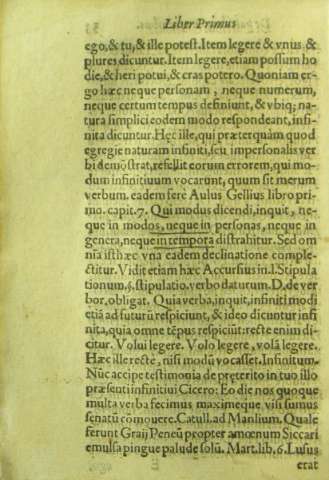 Liber Primus
ego, & tu, & ille potest. Item legere & vnus &
plures dicuntur. Item legere, etiam possum ho
die, & heri potui, & cras potero. Quoniam er-
go hæc neque personam, neque numerum,
neque certum tempus definiunt, & vbiq; na-
tura simplici eodem modo respondeant, infi-
nita dicuntur. Hęc ille, qui præterquàm quod
egregie naturam infiniti, seu impersonalis ver
bi demōstrat, refellit eorum errorem, qui mo-
dum infinitiuum vocarunt, quum sit merum
verbum. eadem fere Aulus Gellius libro pri-
mo. capit. 7. Qui modus dicendi, inquit, ne-
que in modos, neque in personas, neque in
genera, neque in tempora distrahitur. Sed om
nia isthæc vna eadem declinatione comple-
ctitur. Vidit etiam hæc Accursius in .l. Stipula
tionum. §. stipulatio. verbo daturum. D. de ver
bor. obligat. Quia verba, inquit, infiniti modi
etiā ad futurū respiciunt, & ideo dicuntur infi
nita, quia omne tēpus respiciūt: recte enim di-
citur. Volui legere. Volo legere, volā legere.
Hæc ille recte, nisi modū vocasset. Infinitum.
Nūc accipe testimonia de preterito in tuo illo
præsenti infinitiui Cicero: Eo die nos quoque
multa verba fecimus maximeque visi sumus
senatū cōmouere. Catull. ad Manlium. Quale
ferunt Graij Peneū propter amœnum Siccari
emulsa pingue palude solū. Mart. lib. 6. Lusus
erat